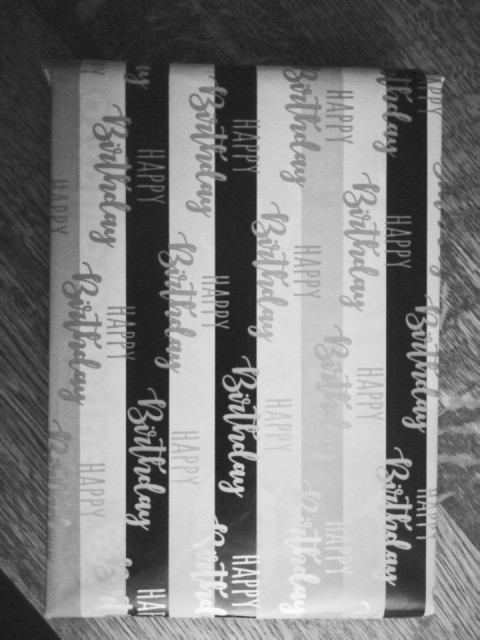 HAPPY
Birthday
Birthday
HAPPY
Birthday
HAPPY
Birthday
HAPPY
Birthday
HAPPY
Birthday
HAPPY
Birthday
HAPPY
Birthday
HAPPY
Birthday
HAPPY
Birthday
HAPPY
HAPPY
Birthday
HAPPY
Birthday
HAPPY
Birthday
HAPPY
Birthday
HAPPY
Birthday
HAPPY